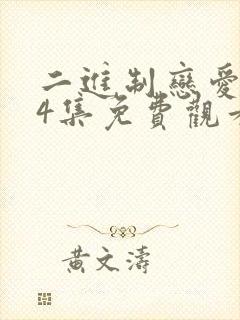 二進制戀愛
4集免費觀
黃文濤